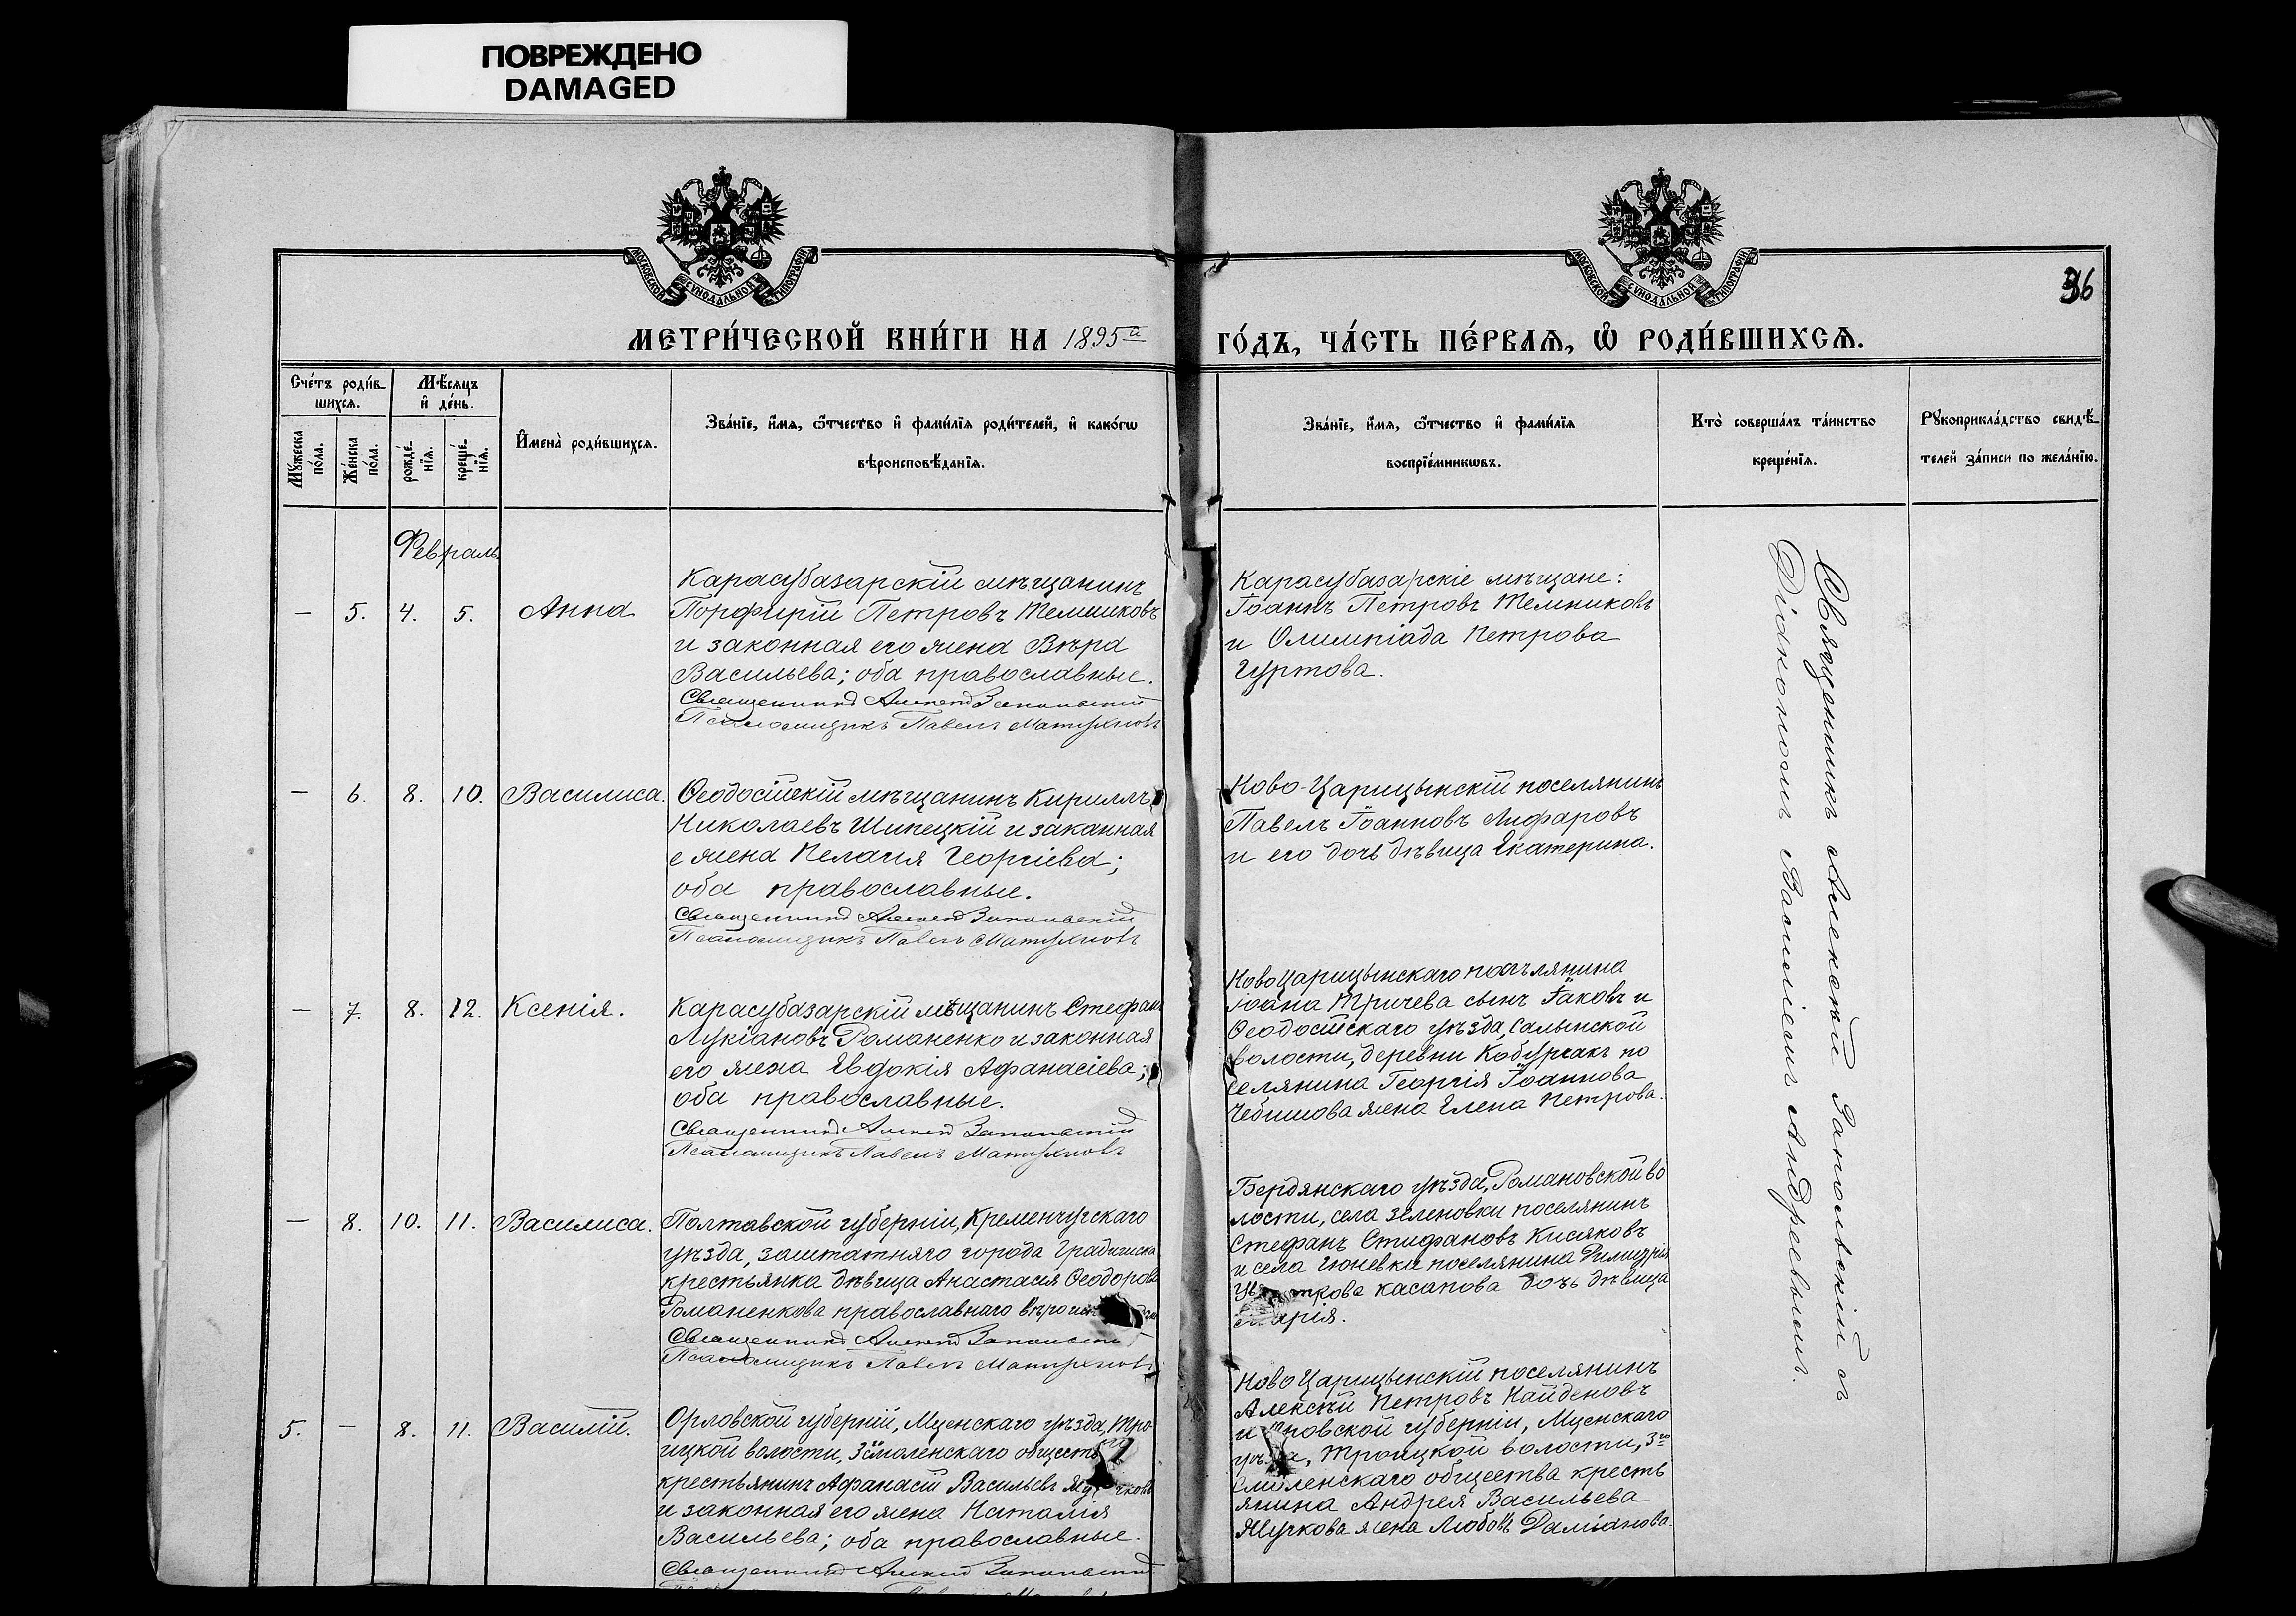 ПОВРЕЖДЕНО
DAMAGED
МОСКОВСКОЙ СУНОДАЛЬНОЙ ТИПОГРАФІИ
МОСКОВСКОЙ СУНОДАЛЬНОЙ ТИПОГРАФІИ
36
МЕТРИ́ЧЕСКОЙ КНИ́ГИ НА 1895й
ГО́ДЪ, ЧА́СТЬ ПЕ́РВАѦ, Ѡ РОДИ́ВШИХСѦ.
Сче́тъ роди́в-
шихсѧ.
Мѣ́сѧцъ
и҆ де́нь.
Мꙋ́жеска по́ла.
Же́нска по́ла.
рожде́-
нїѧ.
креще́-
нїѧ.
И҆мена̀ роди́вшихсѧ.
Зва́нїе, и҆́мѧ, ѻ҆́тчество и҆ фами́лїѧ роди́телей, и҆ како́гѡ
вѣроисповѣ́данїѧ.
Зва́нїе, и҆́мѧ, ѻ҆́тчество и҆ фами́лїѧ
воспрїе́мникѡвъ.
Кто̀ соверша́лъ та́инство
креще́нїѧ.
Рꙋкоприкла́дство свидѣ́-
телей за́писи по жела́нїю.
Февраль
— 5. 4. 5. Анна
Карасубазарскій мѣщанинъ
Порфирій Петровъ Темниковъ
и законная его жена Вѣра
Васильева; оба православные.
Священникъ Алексѣй
Псаломщикъ Павелъ
Карасубазарскіе мѣщане:
Іоаннъ Петровъ Темниковъ
и Олимпіада Петрова
Гуртова.
— 6. 8. 10. Василиса.
Ѳеодосійскій мѣщанинъ Кириллъ
Николаевъ Шипецкій и законная
е жена Пелагія Георгіева;
оба православные.
Священникъ Алексѣй
Псаломщикъ Павелъ
Ново-Царицынскій поселянинъ
Павелъ Іоанновъ Лифаровъ
и его дочь дѣвица Екатерина.
— 7. 8. 12. Ксенія.
Карасубазарскій мѣщанинъ Стефанъ
Лукіановъ Романенко и законная
его жена Евдокія Афанасіева;
оба православные.
Священникъ Алексѣй
Псаломщикъ Павелъ
НовоЦарицынскаго посѣлянина
Іоана Тричева сынъ Іаковъ и
Ѳеодосійскаго уѣзда, Салынской
волости, деревни по
селянина Георгія Іоаннова
жена Елена Петрова.
— 8. 10. 11. Василиса.
Полтавской губерніи, Кременчугскаго
уѣзда, заштатняго города Градижска
крестьянка дѣвица Анастасія Ѳеодорова
Романенкова православнаго
Священникъ Алексѣй
Псаломщикъ Павелъ
Бердянскаго уѣзда, Романовской во
лости, села Зеленовки поселянинъ
Стефанъ Стифановъ Кисяковъ
и села Гюневки поселянина
Касапова дочь дѣвица
Марія.
5. — 8. 11. Василій.
Орловской губерній, Мценскаго уѣзда, Тро-
ицкой волости, 3 Смоленскаго
крестьянинъ Афанасій Васильевъ
и законная его жена Наталія
Васильева; оба православные.
Священникъ Алексѣй
НовоЦарицынскій поселянинъ
Алексѣй Петровъ Найденовъ
и губерніи, Мценскаго
Троицкой волости, 3го
Смоленскаго общества кресть
янина Андрея Васильева
Жучкова жена Любовь Даміанова.
Священникъ Алексѣй съ
Діакономъ Василіемъ Андреевымъ.